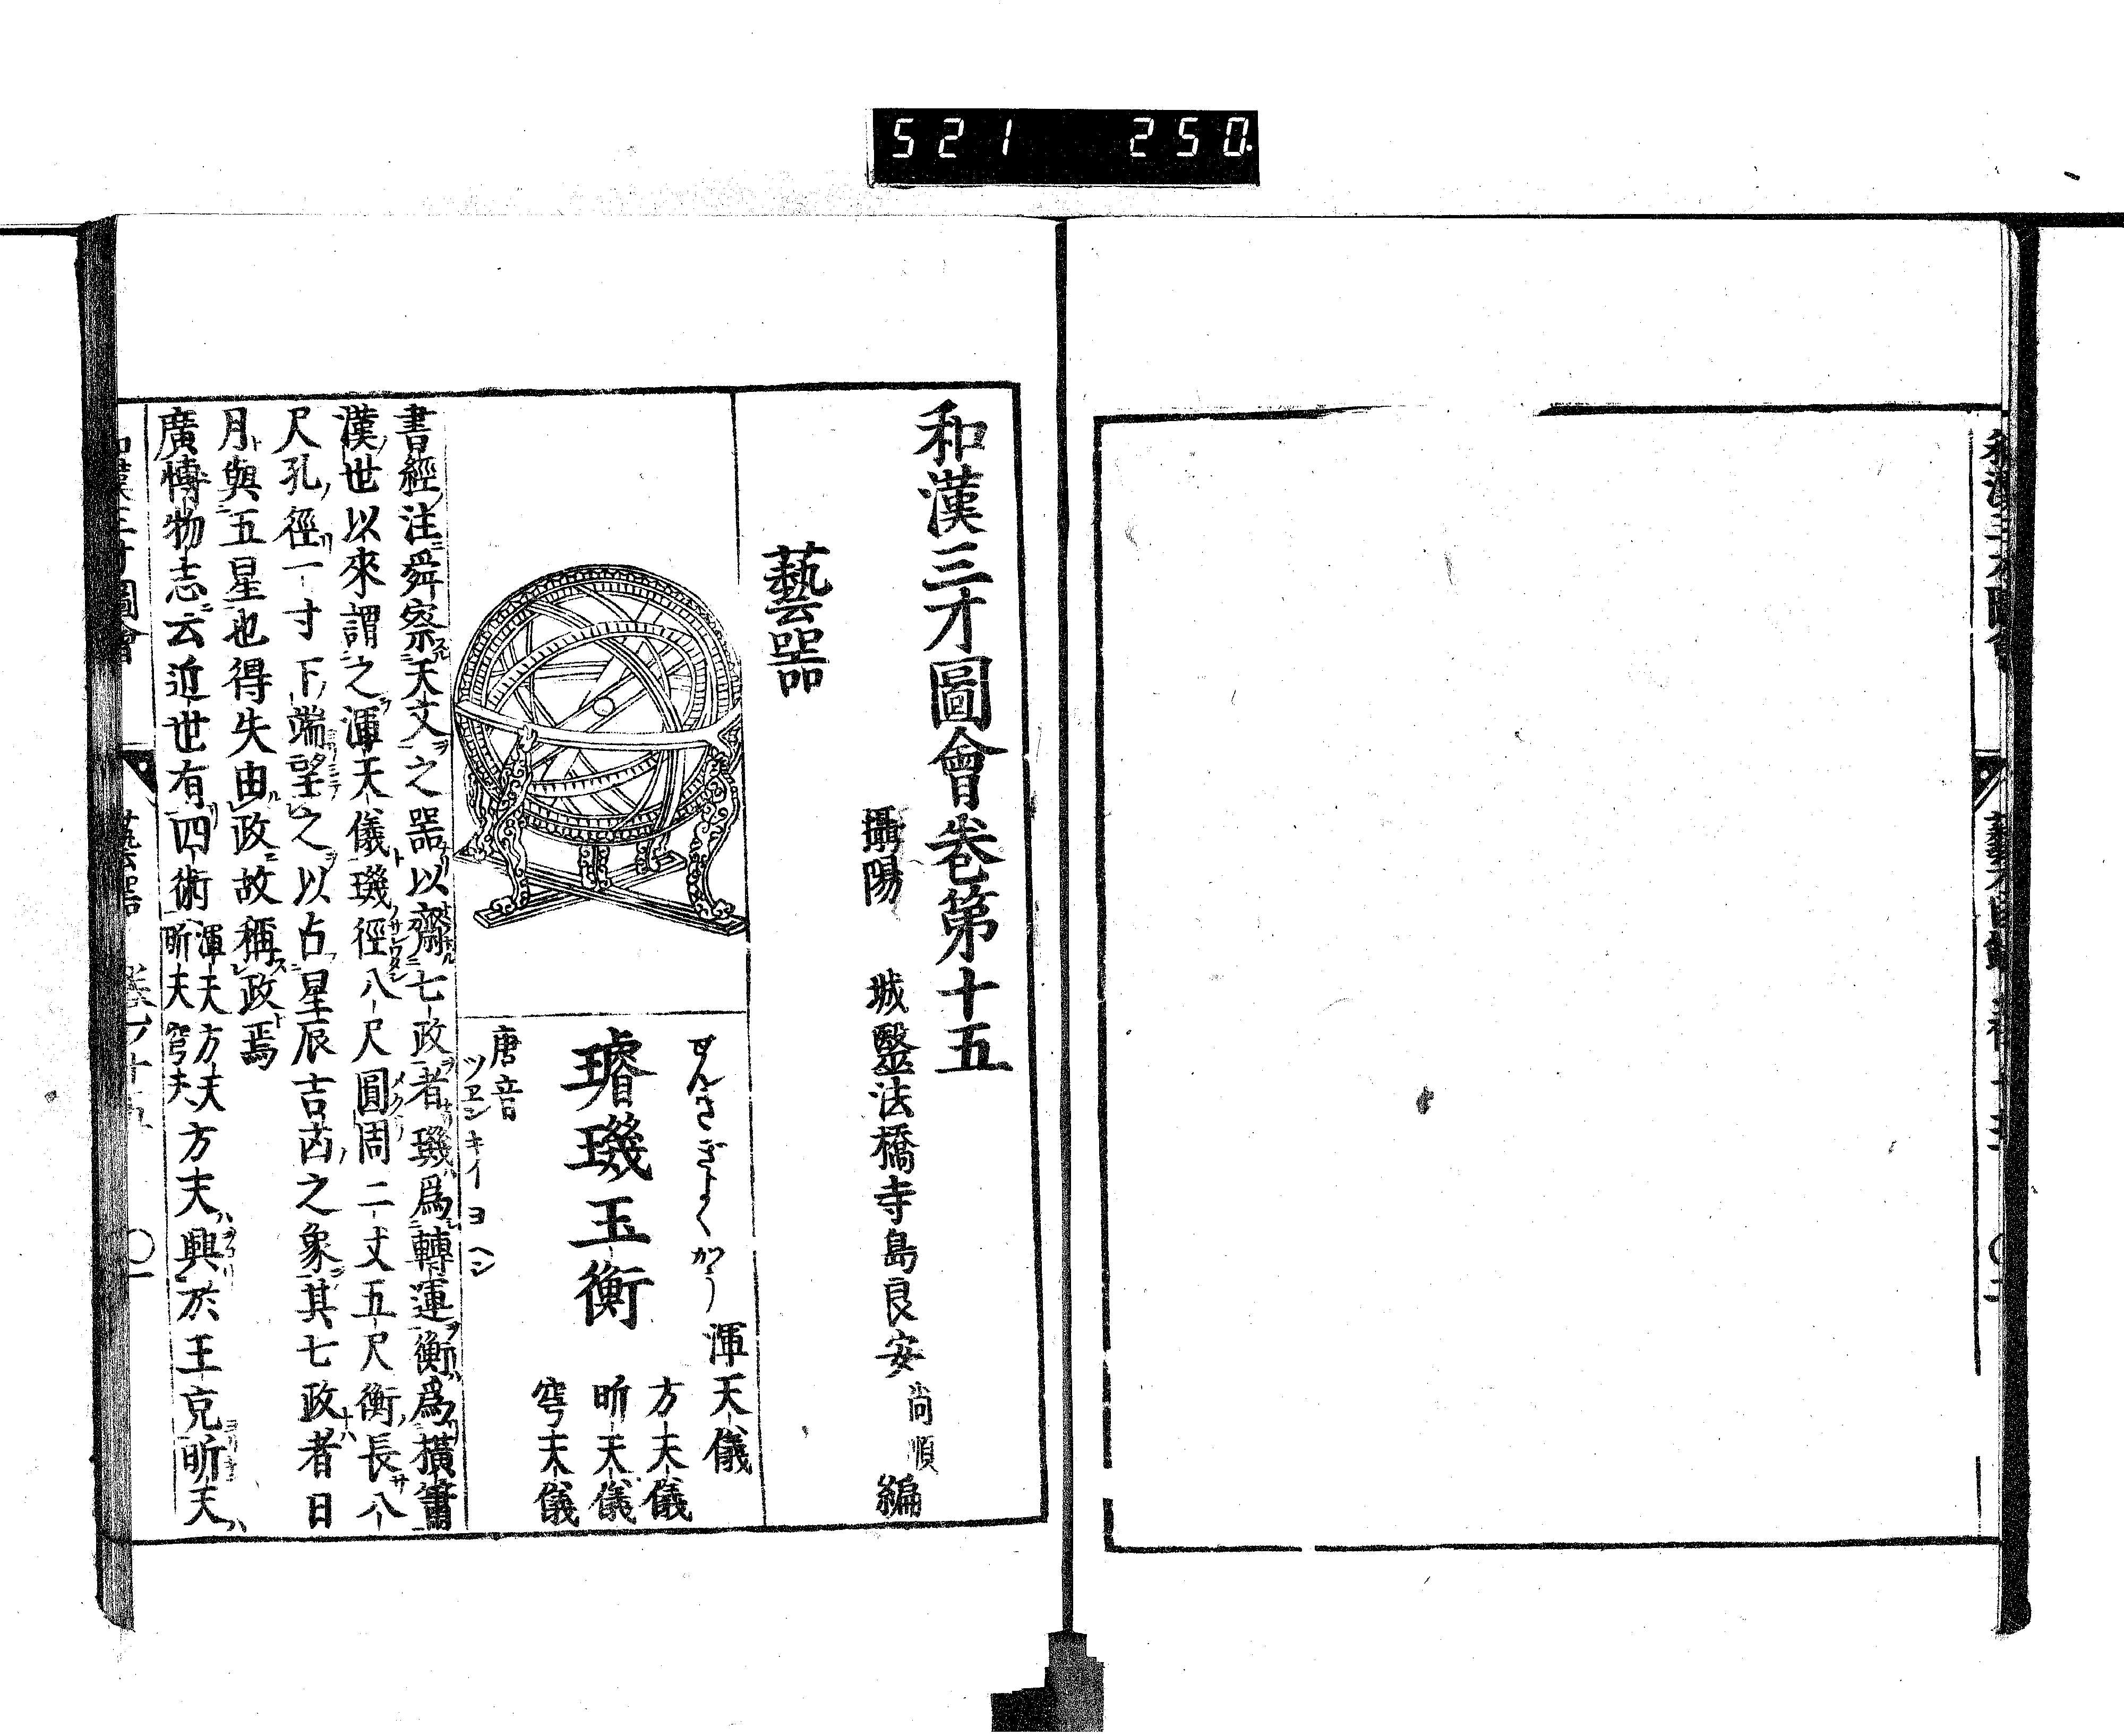 521 250.
和漢三才圖會卷第十五
攝陽 城醫法橋寺島良安尚順編
藝器
せんきぎよくかう
渾天儀
方天儀
昕天儀
穹天儀
璿璣玉衡
唐音
ツヱンキイヨヘン
書經注舜察天文之器以齋七政者璣爲轉運衡爲橫簫
漢世以來謂之渾天儀璣徑八尺圓周二丈五尺衡長八
尺孔徑一寸下端望之以占星辰吉凶之象其七政者日
月與五星也得失由政故稱政焉
廣博物志云近世有四術渾天方天昕天穹天方天興於王充昕天